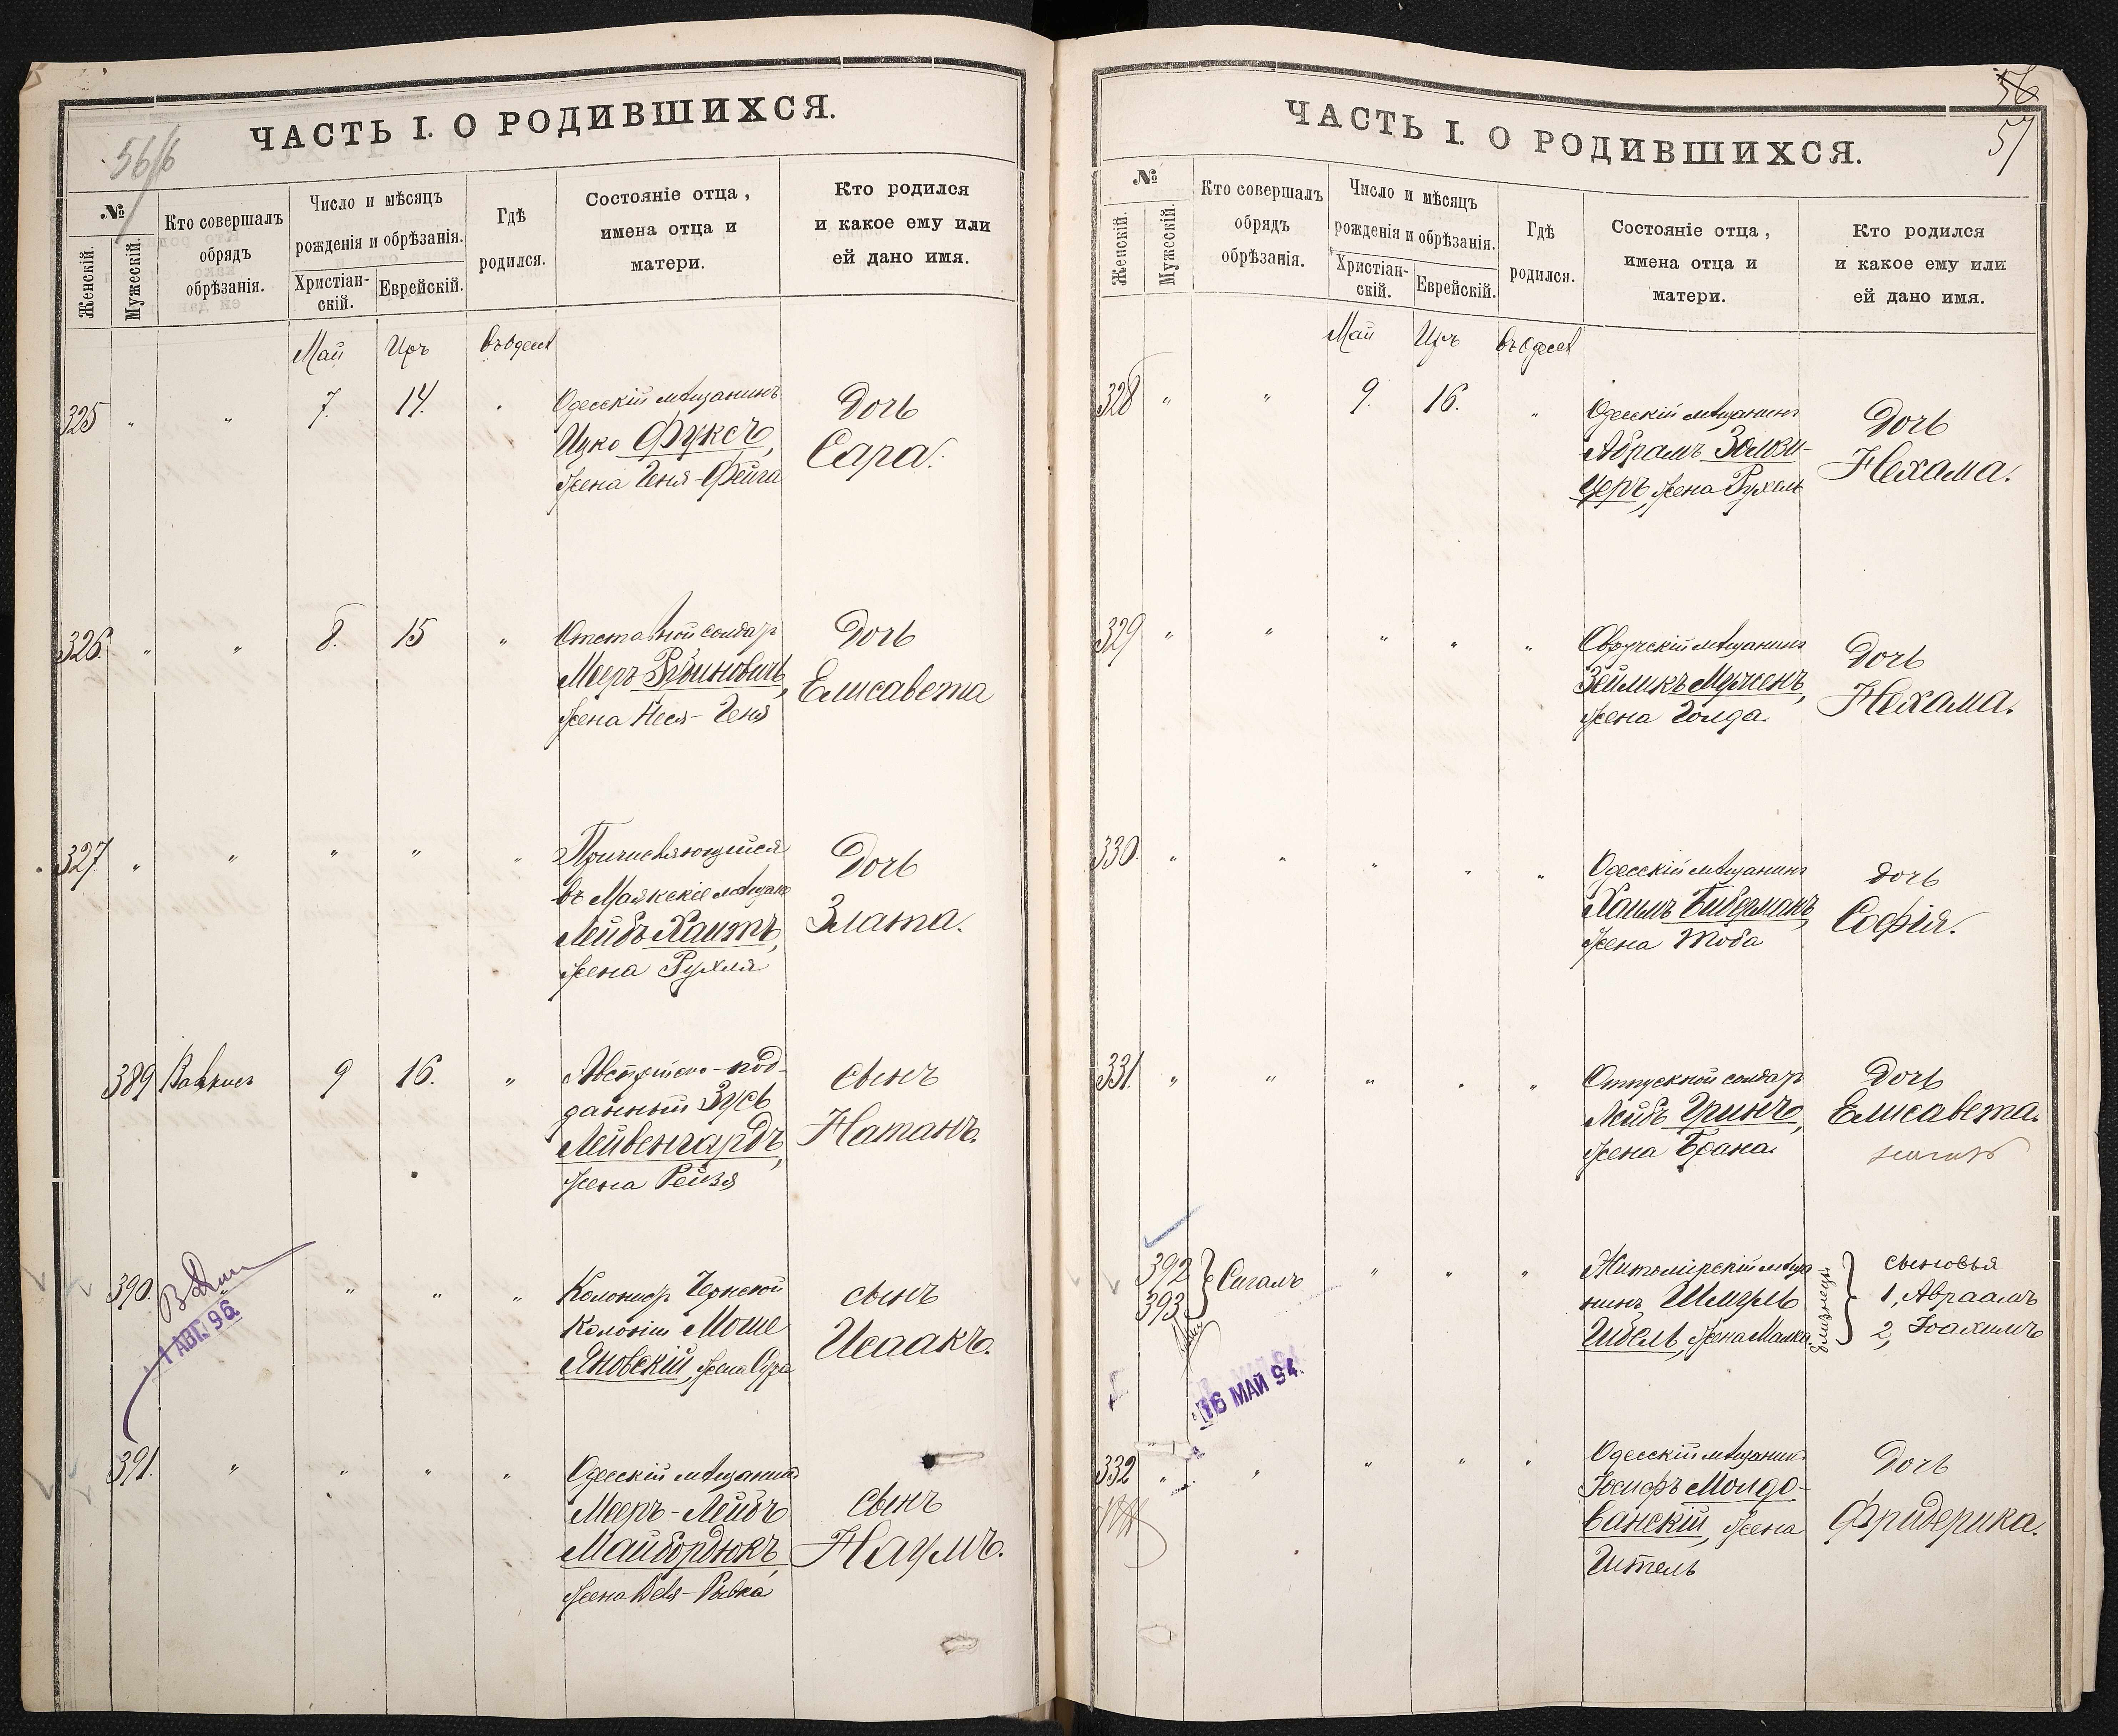 ЧАСТЬ I. О РОДИВШИХСЯ.
№
Женскій.
Мужескій.
Кто совершалъ
обрядъ
обрѣзанія.
Число и мѣсяцъ
рожденія и обрѣзанія.
Христіан-
скій.
Еврейскій.
Гдѣ
родился.
Состояніе отца,
имена отца и
матери.
Кто родился
и какое ему или
ей дано имя.
Май Иръ въ Одессѣ
325 " " 7. 14. "
Одесскій мѣщанинъ
Ицко Фуксъ,
жена Геня-Фейга
Дочь
Сара.
326. " " 8. 15 "
Отставной солдатъ
Мееръ
жена Неся-Геня
Дочь
Елисавета
327 " " " " "
Причисляющійся
въ Маякскіе мѣщане
Лейбъ Хаитъ,
жена Рухля
Дочь
Злата.
389 9 16. "
Австрійско-под-
данный Зусь
Лейвенгардъ,
жена Рейзя
сынъ
Натанъ.
390. " " "
1 АВГ. 96
Колонистъ
Колоніи Моше
Яновскій, жена Сура
сынъ
Исаакъ.
391. " " " "
Одесскій мѣщанинъ
Мееръ-Лейбъ
Майбордюкъ,
жена Рывка
сынъ
Наумъ.
56
57
ЧАСТЬ I. О РОДИВШИХСЯ.
№
Женскій.
Мужескій.
Кто совершалъ
обрядъ
обрѣзанія.
Число и мѣсяцъ
рожденія и обрѣзанія.
Христіан-
скій.
Еврейскій.
Гдѣ
родился.
Состояніе отца,
имена отца и
матери.
Кто родился
и какое ему или
ей дано имя.
Май Иръ въ Одессѣ
328 " " 9. 16. "
Одесскій мѣщанинъ
Абрамъ Золози-
церъ, жена Рухель
Дочь
Нехама.
329 " " " " "
Овручскій мѣщанинъ
Зейликъ
жена Голда.
Дочь
Нехама.
330. " " " " "
Одесскій мѣщанинъ
Хаимъ Бидерманъ,
жена Тоба
дочь
Софія.
331. " " " " "
Отпускной солдатъ
Лейбъ Гринъ,
жена Брана
Дочь
Елисавета.
392
393 Сигалъ " " "
16 МАЙ 94.
Житомірскій мѣща-
нинъ Шмуль
Гибель, жена Малка.
близнецы
сыновья
1, Авраамъ
2, Іоахимъ
332 " " " " "
Одесскій мѣщанинъ
Іосифъ Молдо-
ванскій, жена
Гитель
Дочь
Фридерика.